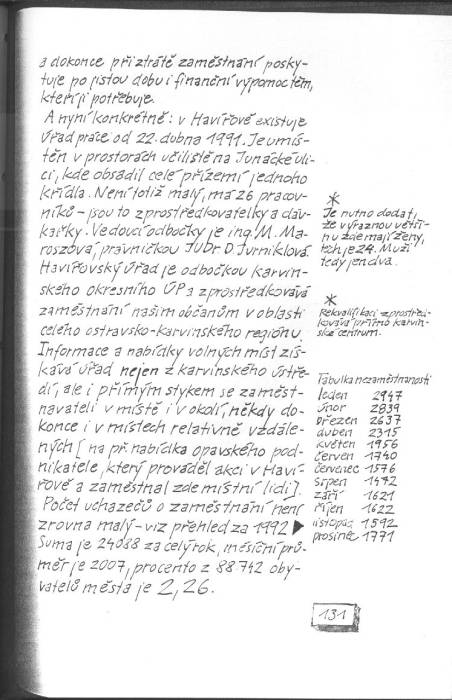 a dokonce při ztrátě zaměstnání posky-
tuje po jistou dobu i finanční výpomoc těm,
kteří ji potřebuje.
A nyní konkrétně: v Havířově existuje
Úřad práce od 22. dubna 1991. Je umís-
těn v prostorách učiliště na Junácké uli-
ci, kde obsadil celé přízemí jednoho
křídla. Není totiž malý, má 26 pracov-
níků – jsou to zprostředkovatelky a dáv-
kařky. Vedoucí odbočky je ing. M. Ma-
roszová, právničkou JUDr. D. Jurniklová.
Havířovský úřad je odbočkou karvin-
ského okresního ÚP a zprostředkovává
zaměstnání našim občanům v oblasti
celého ostravsko-karvinského regionu.
Informace a nabídky volných míst zís-
kává úřad nejen z karvinského ústře-
dí, ale i přímým stykem se zaměst-
navateli v místě i v okolí, někdy do-
konce i v místech relativně vzdále-
ných [na př. nabídka opavského pod-
nikatele, který prováděl akci v Haví-
řově a zaměstnal zde místní lidi].
Počet uchazečů o zaměstnání není
zrovna malý – viz přehled za 1992 ▶
Suma je 24088 za celý rok, měsíční prů-
měr je 2007, procento z 88 742 oby-
vatelů města je 2,26.
*
Je nutno dodat,
že výraznou větši-
nu zde mají ženy,
těch je 24. Muži
tedy jen dva.
*
Rekvalifikaci zprostřed-
kovává přímo karvin-
ské centrum.
Tabulka nezaměstnanosti
leden 2947
únor 2839
březen 2637
duben 2315
květen 1956
červen 1740
červenec 1576
srpen 1472
září 1621
říjen 1622
listopad 1592
prosinec 1771
131